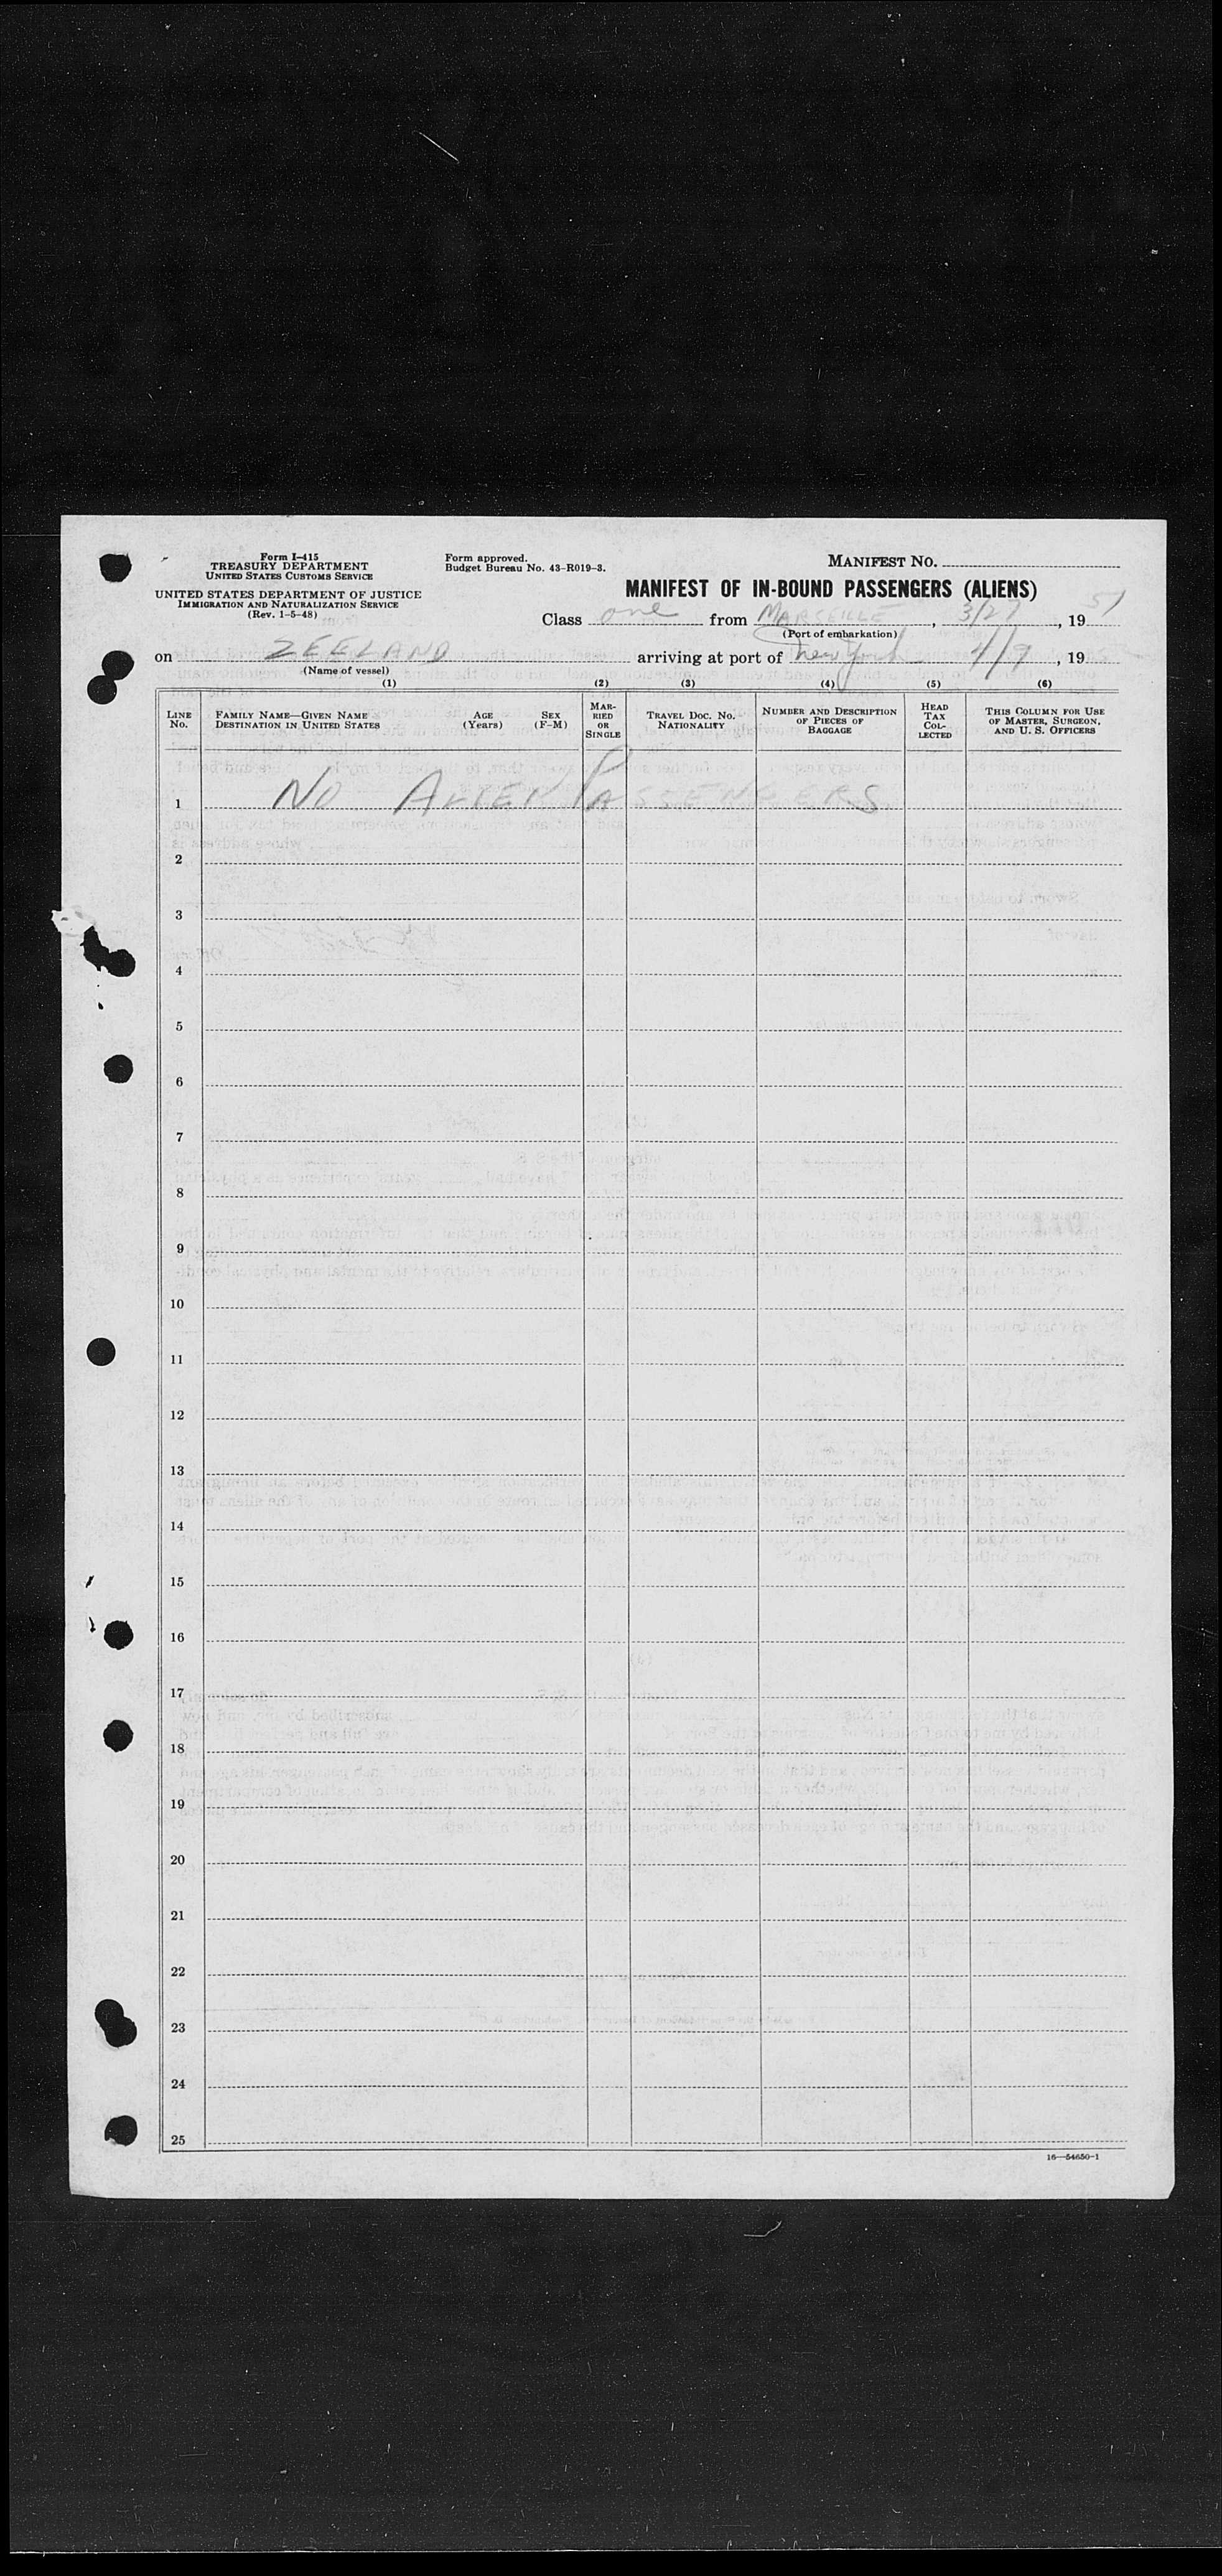 Form I-415
TREASURY DEPARTMENT
UNITED STATES CUSTOMS SERVICE
UNITED STATES DEPARTMENT OF JUSTICE
IMMIGRATION AND NATURALIZATION SERVICE
(Rev. 1-5-48)
Form approved.
Budget Bureau No. 43-R019-3.
MANIFEST NO.
MANIFEST OF IN-BOUND PASSENGERS (ALIENS)
Class one from MARSEILLE, 3/27, 1951
(Port of embarkation)
on ZEELAND arriving at port of New York 4/9, 19
(Name of vessel)
(1) (2) (3) (4) (5) (6)
LINE No. FAMILY NAME—GIVEN NAME DESTINATION IN UNITED STATES AGE (Years) SEX (F-M) MARRIED OR SINGLE TRAVEL DOC. NO. NATIONALITY NUMBER AND DESCRIPTION OF PIECES OF BAGGAGE HEAD TAX COLLECTED THIS COLUMN FOR USE OF MASTER, SURGEON, AND U. S. OFFICERS
1 NO ALIEN PASSENGERS
2
3
4
5
6
7
8
9
10
11
12
13
14
15
16
17
18
19
20
21
22
23
24
25
16—54650-1